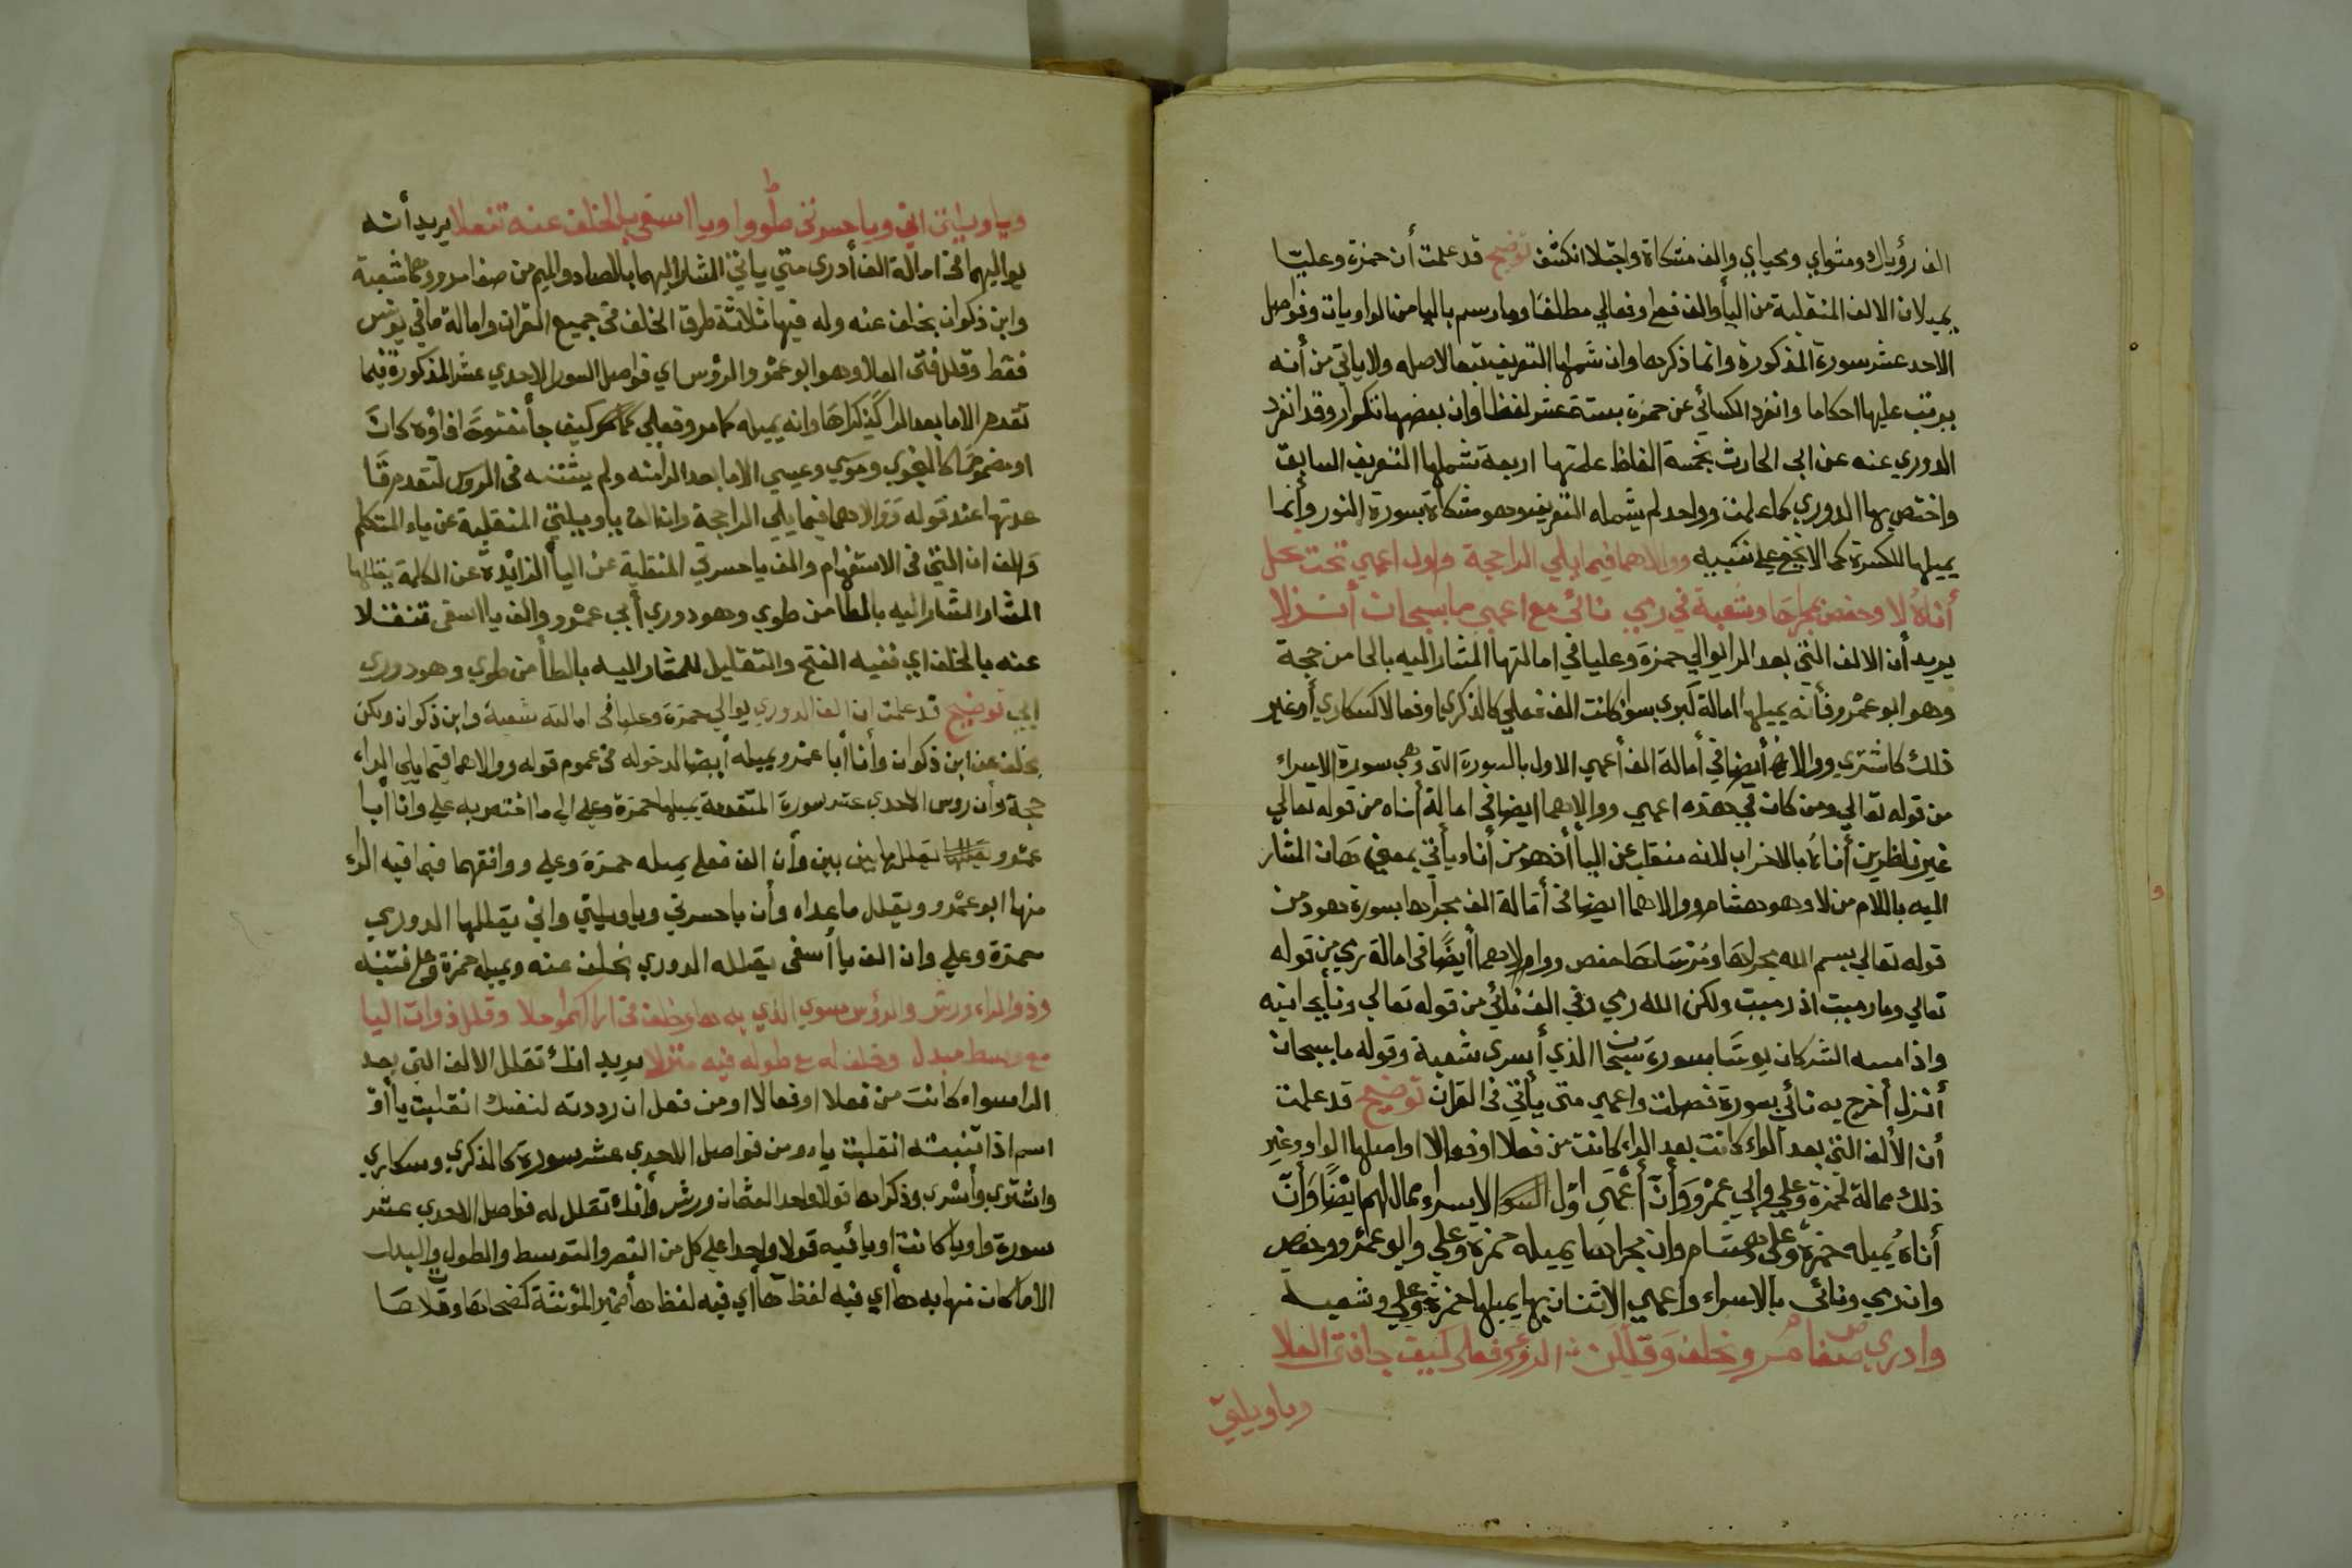 الف رؤياك ومثواي ومحياي والف مشكاة واجتلا انكشف توضيح قد علمت أن حمزة وعليا
يميلان الالف المنقلبة من اليأ والف فعلى وفعالي مطلقا وما رسم باليا من الواويات وفواصل
الاحد عشر سورة المذكورة وانما ذكرها وان شملها التعريف تبعا لاصله ولا ياتي من أنه
يرتب عليها احكاما وانفرد الكسائي عن حمزة بستة عشر لفظا وان بعضها تكرار وقد انفرد
الدوري عنه عن ابي الحارث بخمسة الفاظ علمتها اربعة شملها التعريف السابق
واختص بها الدوري كما علمت وواحد لم يشمله التعريف وهو مشكاة بسورة النور وأنما
يميلها للكسرة كما لا يخفي علي نبيه ووالاهما فيما يلي الراحجة واول اعمي تحت محل
أناه لا وحفص بمجراها وشعبة في رمي نائي مع اعمي ما بسبحان أنزلا
يريد أن الالف التي بعد الرا يوالي حمزة وعليا في امالتها المشار اليه بالحا من حجة
وهو ابو عمرو فأنه يميلها امالة كبري سوا كانت الف فعلي كالذكري او فعالا كسكاري أو غير
ذلك كاشتري ووالاهما أيضا في أمالة الف أعمي الاول بالسورة التي وهي سورة الاسراء
من قوله تعالي ومن كان في هذه اعمي ووالاهما ايضا في امالة أناه من قوله تعالي
غير ناظرين أناه بالاحزاب لانه منقلب عن اليأ أذ هو من أنا ويأتي بمعني حان المشار
اليه باللام من لا وهو هشام ووالاهما ايضا في أمالة الف مجراها بسورة هود من
قوله تعالي بسم الله مجراها ومرساها حفص ووالاهما أيضا في امالة رمي من قوله
تعالي وما رميت اذ رميت ولكن الله رمي وفي الف نائي من قوله تعالي ونأي بجانبه
واذا مسه الشر كان يوسا بسورة سبحان الذي أسري شعبة وقوله ما بسبحان
أنزل أخرج به نائي بسورة فصلت واعمي متي يأتي في القرآن توضيح قد علمت
أن الألف التي بعد الراء كانت بعد الراء كانت من فعلا او فعالا او اصلها الواو وغير
ذلك ممالة لحمزة وعلي وابي عمرو وأن أعمي اول السوا الاسراء ممال لهم ايضا وأن
أناه يميله حمزة وعلي وهشام وان مجراها يميله حمزة وعلي وابو عمرو وحفص
وان رمي ونائي بالاسراء واعمي الاثنان بها يميلها حمزة وعلي وشعبه
وادري صفا من وبخلف وقللن الرؤس فعلى كيف جا فتي العلا
وياويلتي
وياويلتي اني وياحسرتي طووا ويا اسفي بالخلف عنه تنفلا يريد أنه
يواليهما في امالة الف أدري متي ياتي المشار اليهما بالصاد والميم من صفا من وهما شعبة
وابن ذكوان بخلف عنه وله فيها ثلاثة طرق الخلف في جميع القران وامالة ما في يونس
فقط وقلل فتي العلا وهو ابو عمرو والرؤس اي فواصل السور الاحدي عشر المذكورة فيما
تقدم الا ما بعد الرا كذكراها وانه يميله كما مر وفعلي كيف جأ مفتوحة افاؤه كانت
او مضمومة كالنجوي وموسي وعيسي الا ما بعد الرا منه ولم يثتنه في الروس لتقدم رقا
عدتها عند قوله ووالاهما فيما يلي الراحجة وانالف ياويلتي المنقلبة عن ياء المتكلم
والف اني التي في الاستفهام والف ياحسرتي المنقلبة عن اليأ الزايدة عن الكلمة يقللها
المشار المشار اليه بالطا من طوي وهو دوري أبي عمرو والف يا اسفي تنفلا
عنه بالخلف اي ففيه الفتح والتقليل للمشار اليه بالطأ من طوي وهو دوري
ابي توضيح قد علمت ان الف الدوري يوالي حمزة وعليا في امالته شعبة وابن ذكوان ولكن
بخلف عن ابن ذكوان وأنا أبا عمرو يميله أيضا لدخوله في عموم قوله ووالاهما فيما يلي الراء
حجة وأن روس الاحدي عشر سورة المتقدمة يميلها حمزة وعلي الي ما اختص به علي وأنا أبا
عمرو يقللها بين بين وأن الف فعلي يميله حمزة وعلي ووافقهما فيما فيه الراء
منها ابو عمرو ويقلل ماعداه وأن ياحسرتي وياويلتي واني يقللها الدوري
حمزة وعلي وان الف يا أسفي يقلله الدوري بخلف عنه ويميله حمزة وعلي فتنبه
وذو الراء ورش والرؤس سوي الذي به ها وخلف في اراكهم ولا وقلل ذوات اليا
مع وسط مبدل وخلف له مع طوله فيه منزلا يريد انك تقلل الالف التي بعد
الرا سواء كانت من فعلا او فعالا او من فعل ان رددته لنفسك انقلبت يا أو
اسم اذا تثنيته انقلبت ياء ومن فواصل الاحدي عشر سورة كالذكري وسكاري
واشتري وأسري وذكراها قولا واحدا لعثمان ورش وأنك تقلل له فواصل الاحدي عشر
سورة واويا كانت او يائيه قولا واحدا علي كل من القصر والتوسط والطول والبدل
الا ما كان منها به هأ أي فيه لفظ هأ أي فيه لفظ هأ ضمير المؤنثة كضحاها وتلاها